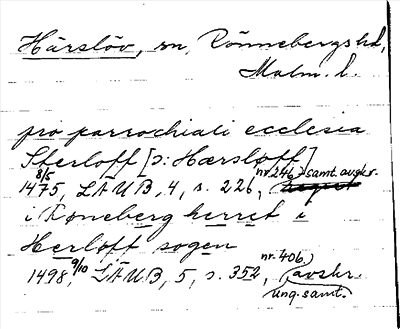 Härslöv, sn, Rönnebergs hd,
Malm. l.
pro parrochiali ecclesia
Sterloff [ɔ: Hærsløff]
8/5 1475, LÄUB, 4, s. 226, nr. 246 samt. avskr.
i Røneberg herret i
Herløff sogen
1498, 9/10 LÄUB, 5, s. 352, nr. 406, (avskr.
ung. samt.